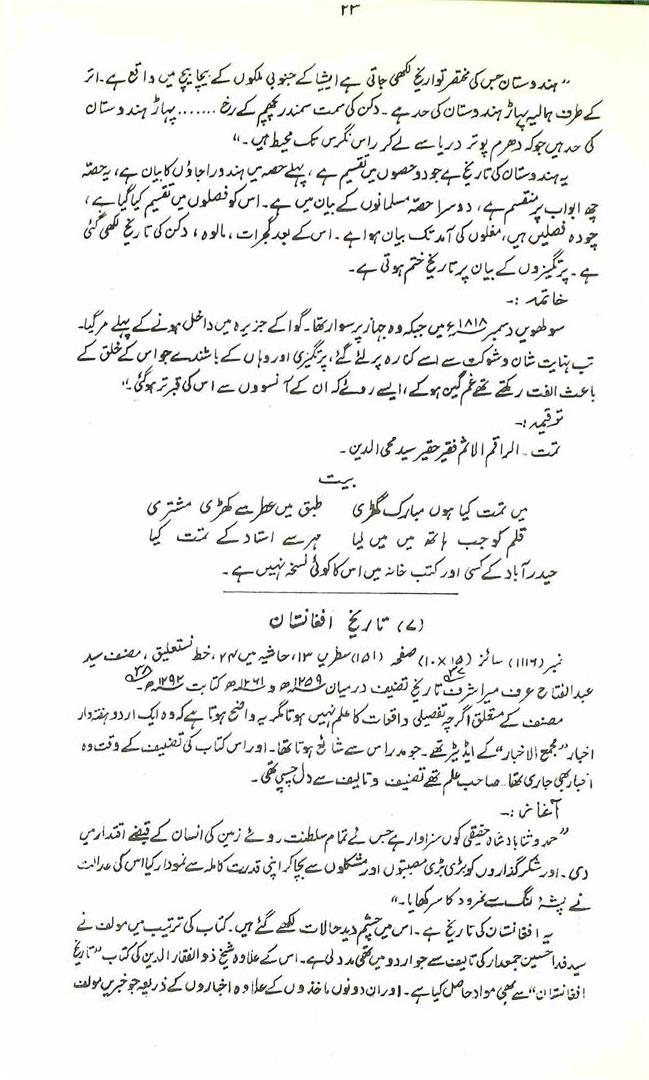 ۲۳
”ہندوستان جس کی مختصر تواریخ لکھی جاتی ہے ایشیا کے جنوبی ملکوں کے بیچا بیچ میں واقع ہے۔ اتر
کے طرف ہمالیہ پہاڑ ہندوستان کی حد ہے۔ دکن کی سمت سمندر پچھم کے رخ ....... پہاڑ ہندوستان
کی حد ہیں جو کہ دھرم پوتر دریا سے لے کر راس نگرس تک محیط ہیں۔“
یہ ہندوستان کی تاریخ ہے جو دو حصوں میں تقسیم ہے، پہلے حصہ میں ہندو راجاؤں کا بیان ہے، یہ حصّہ
چھ ابواب پر منقسم ہے، دوسرا حصّہ مسلمانوں کے بیان میں ہے۔ اس کو فصلوں میں تقسیم کیا گیا ہے،
چودہ فصلیں ہیں، مغلوں کی آمد تک بیان ہوا ہے۔ اس کے بعد گجرات، مالوہ، دکن کی تاریخ لکھی گئی
ہے۔ پرتگیزوں کے بیان پر تاریخ ختم ہوتی ہے۔
خاتمہ :۔
سولھویں دسمبر ۱۸۱۸ء میں جبکہ وہ جہاز پر سوار تھا۔ گوا کے جزیرہ میں داخل ہونے کے پہلے مر گیا۔
تب نہایت شان و شوکت سے اسے کنارہ پر لئے گئے، پرتگیزی اور وہاں کے باشندے جو اس کے خلق کے
باعث الفت رکھتے تھے غم گین ہوکے، ایسے روئے کہ ان کے آنسووں سے اس کی قبر تر ہوگئی۔“
ترقیمہ :۔
تمت۔ الراقم الاثم فقیر حقیر سید محی الدین۔
بیت
میں تمت کیا ہوں مبارک گھڑی طبق میں عطر لے کھڑی مشتری
قلم کو جب ہاتھ میں میں لیا مہر سے استاد کے تمت کیا
حیدرآباد کے کسی اور کتب خانہ میں اس کا کوئی نسخہ نہیں ہے۔
(۷) تاریخ افغانستان
نمبر (۱۱۱۶) سائز (۱۵×۱۰) صفحہ (۱۵۱) سطر ۱۳، حاشیہ میں ۲۴، خط نستعلیق، مصنف سید
عبدالفتاح عرف میر اشرف تاریخ تصنیف درمیان ۱۲۵۹ھ و ۱۲۶۱ھ کتابت ۱۲۹۲ھ۔
مصنف کے متعلق اگرچہ تفصیلی واقعات کا علم نہیں ہوتا مگر یہ واضح ہوتا ہے کہ وہ ایک اردو ہفتہ وار
اخبار ”مجمع الاخبار“ کے ایڈیٹر تھے۔ جو مدراس سے شائع ہوتا تھا۔ اور اس کتاب کی تصنیف کے وقت وہ
اخبار بھی جاری تھا۔ صاحب علم تھے تصنیف و تالیف سے دل چسپی تھی۔
آغاز :۔
”حمد و ثنا بادشاہ حقیقی کوں سزاوار ہے جس نے تمام سلطنت روئے زمین کی انسان کے قبضے اقتدار میں
دی۔ اور شکر گذاروں کو بڑی بڑی مصیبتوں اور مشکلوں سے بچا کر اپنی قدرت کاملہ سے نمودار کیا اس کی عدالت
نے پشۂ لنگ سے نمرود کا سر کھایا۔“
یہ افغانستان کی تاریخ ہے۔ اس میں چشم دید حالات لکھے گئے ہیں۔ کتاب کی ترتیب میں مولف نے
سید فدا حسین جمعدار کی تالیف سے جو اردو میں تھی مدد لی ہے۔ اس کے علاوہ شیخ ذوالفقار الدین کی کتاب ”تاریخ
افغانستان“ سے بھی مواد حاصل کیا ہے۔ اور ان دونوں ماخذوں کے علاوہ اخباروں کے ذریعہ جو خبریں مولف